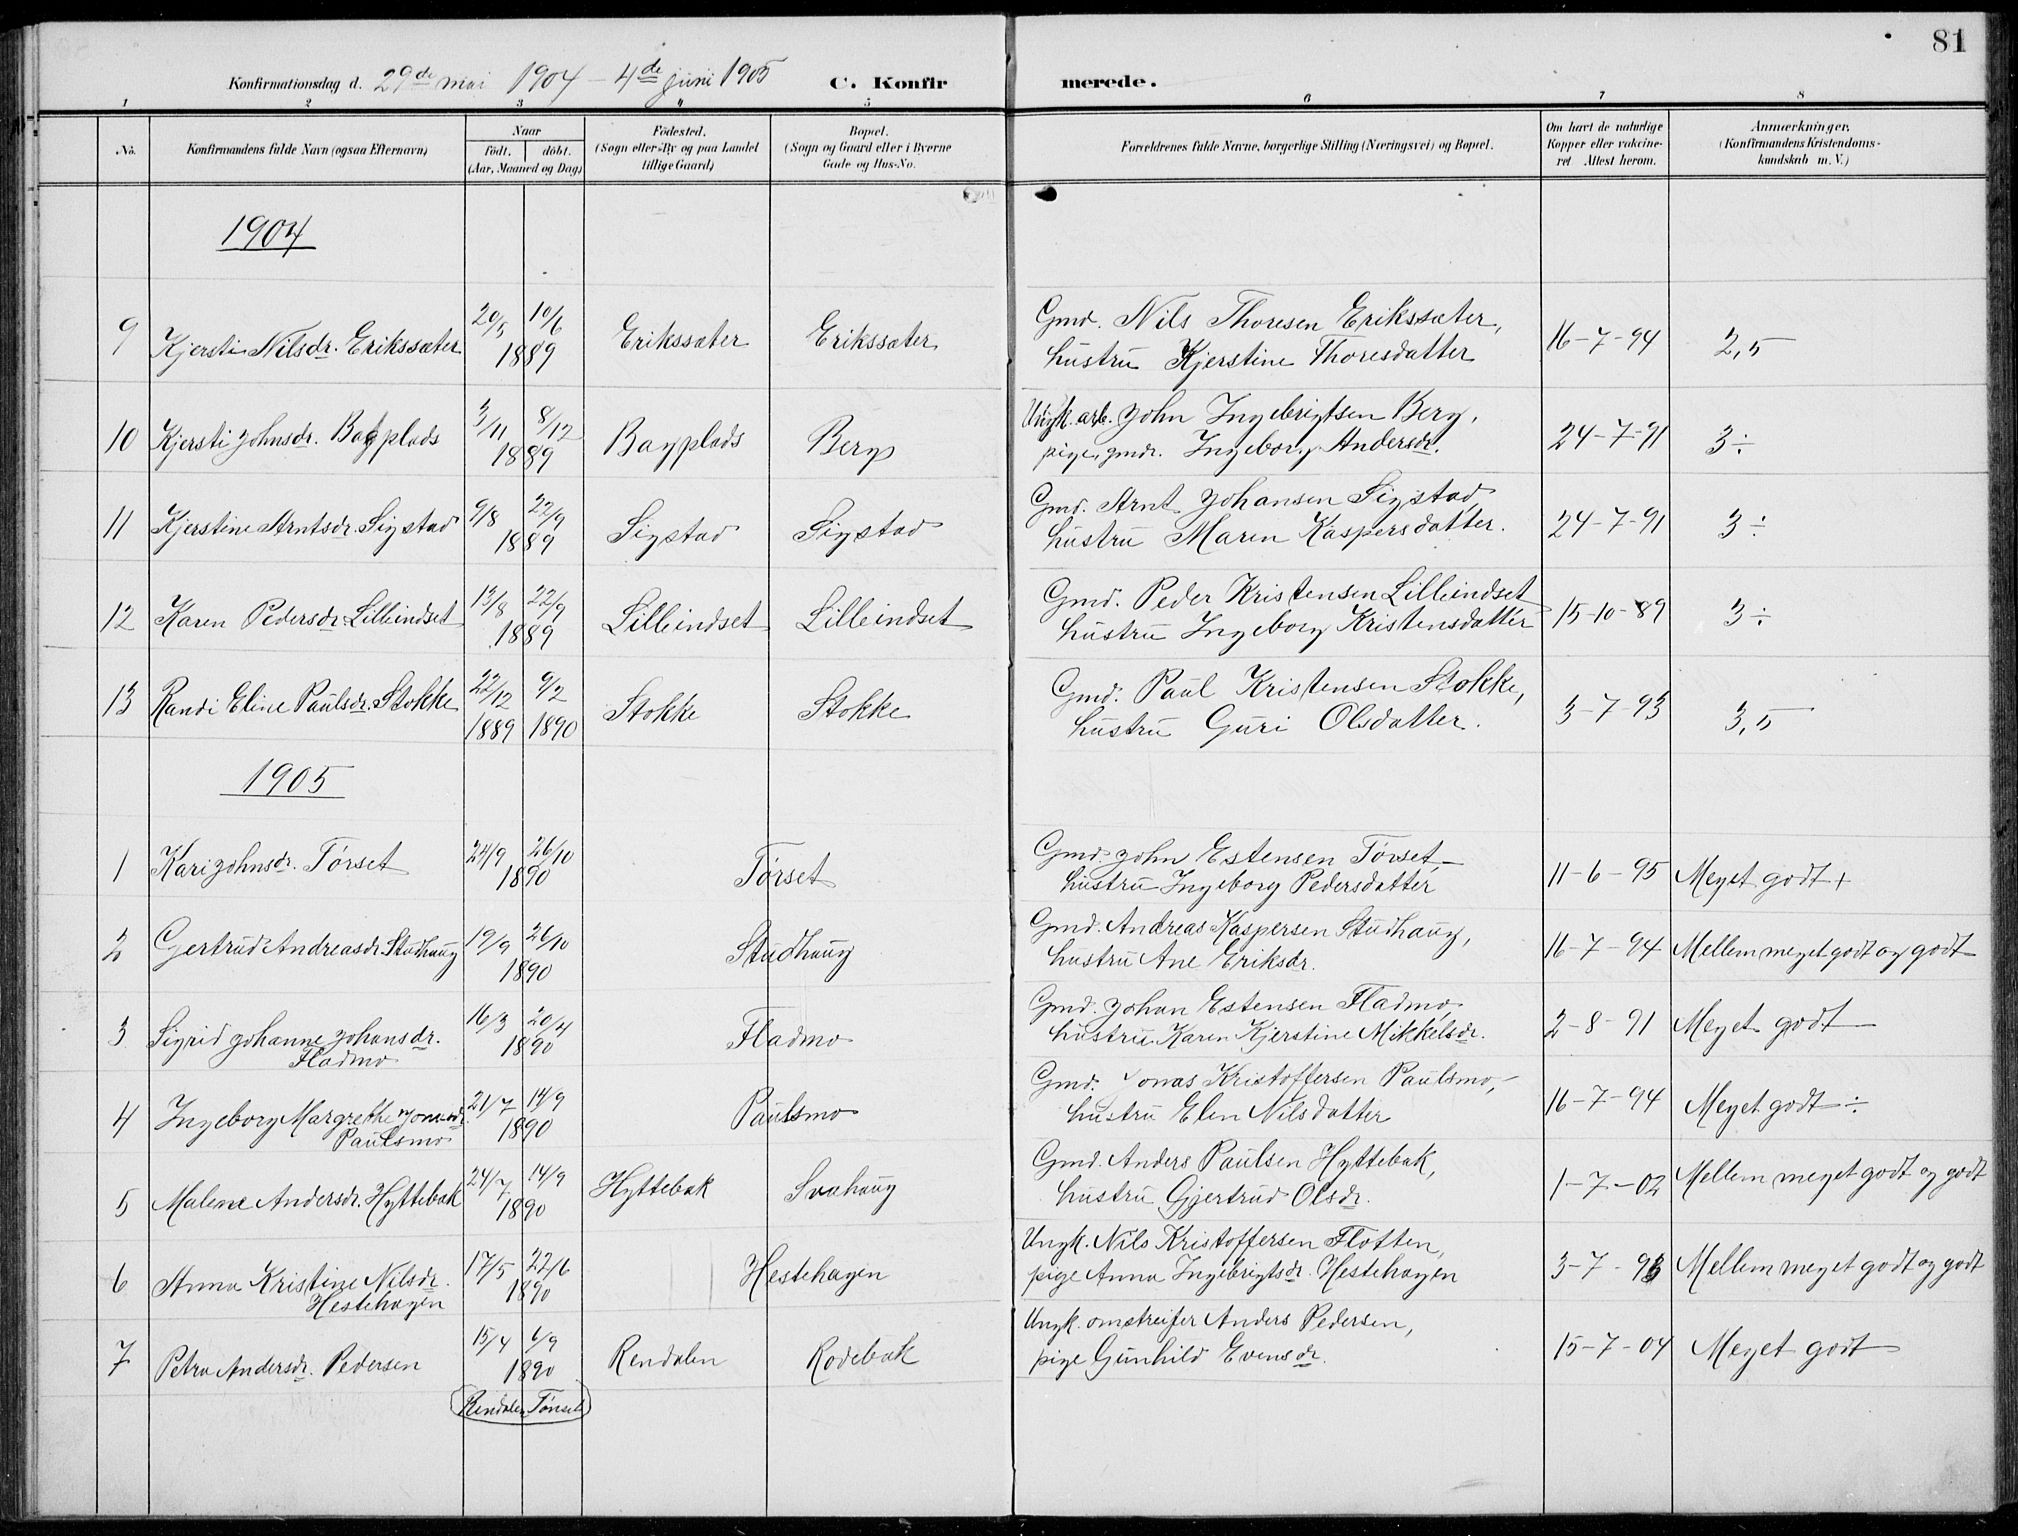 81
Konfirmationsdag d. 29de mai 1904 – 4de juni 1905 C. Konfirmerede.
1 2 3 4 5 6 7 8
No.
Konfirmandens fulde Navn (ogsaa Efternavn)
Naar
født. døbt.
(Aar, Maaned og Dag)
Fødested.
(Sogn eller By og paa Landet
tillige Gaard)
Bopæl.
(Sogn og Gaard eller i Byerne
Gade og Hus-No.
Forældrenes fulde Navne, borgerlige Stilling (Næringsvei) og Bopæl.
Om havt de naturlige
Kopper eller vakcine-
ret Attest herom.
Anmærkninger.
(Konfirmandens Kristendoms-
kundskab m. V.)
1904
9 Kjersti Nilsdr. Erikssæter 20/5 10/6 1889 Erikssæter Erikssæter
Gmd. Nils Thoresen Erikssæter,
hustru Kjerstine Thoresdatter 16-7-94 2,5
10 Kjersti Johnsdr. Bagplads 3/11 8/12 1889 Bagplads Berg
Ungk. arb. John Ingebrigtsen Berg,
pige, gmdr. Ingeborg Andersdr. 24-7-91 3÷
11 Kjerstine Arntsdr. Sigstad 9/8 22/9 1889 Sigstad Sigstad
Gmd. Arnt Johansen Sigstad
hustru Maren Kaspersdatter. 24-7-91 3÷
12 Karen Pedersdr. Lilleindset 13/8 22/9 1889 Lilleindset Lilleindset
Gmd. Peder Kristensen Lilleindset
hustru Ingeborg Kristensdatter 15-10-89 3÷
13 Randi Eline Paulsdr. Stokke 22/12 1889 9/2 1890 Stokke Stokke
Gmd. Paul Kristensen Stokke,
hustru Guri Olsdatter. 3-7-93 3,5
1905
1 Kari Johnsdr. Tørset 24/9 26/10 1890 Tørset
Gmd. John Estensen Tørset,
hustru Ingeborg Pedersdatter 11-6-95 Meget godt +
2 Gertrud Andreasdr. Studhaug 19/9 26/10 1890 Studhaug
Gmd. Andreas Kaspersen Studhaug,
hustru Ane Eriksdr. 16-7-94 Mellem meget godt og godt
3 Sigrid Johanne Johansdr.
Fladmo 16/3 20/4 1890 Fladmo
Gmd. Johan Estensen Fladmo,
hustru Karen Kjerstine Mikkelsdr. 2-8-91 Meget godt
4 Ingeborg Margrethe Jonasdr.
Paulsmo 21/7 14/9 1890 Paulsmo
Gmd. Jonas Kristoffersen Paulsmo,
hustru Elen Nilsdatter 16-7-94 Meget godt ÷
5 Malene Andersdr. Hyttebak 24/7 14/9 1890 Hyttebak Svahaug
Gmd. Anders Paulsen Hyttebak,
hustru Gjertrud Olsdr. 1-7-02 Mellem meget godt og godt
6 Anna Kristine Nilsdr.
Hestehagen 17/5 22/6 1890 Hestehagen
Ungk. Nils Kristoffersen Flotten,
pige Anna Ingebrigtsdr. Hestehagen 3-7-93 Mellem meget godt og godt
7 Petra Andersdr. Pedersen 15/4 6/9 1890 Rendalen Rodebak
Rendalen Tønset
Ungk. omstreifer Anders Pedersen,
pige Gunhild Evensdr. 15-7-04 Meget godt